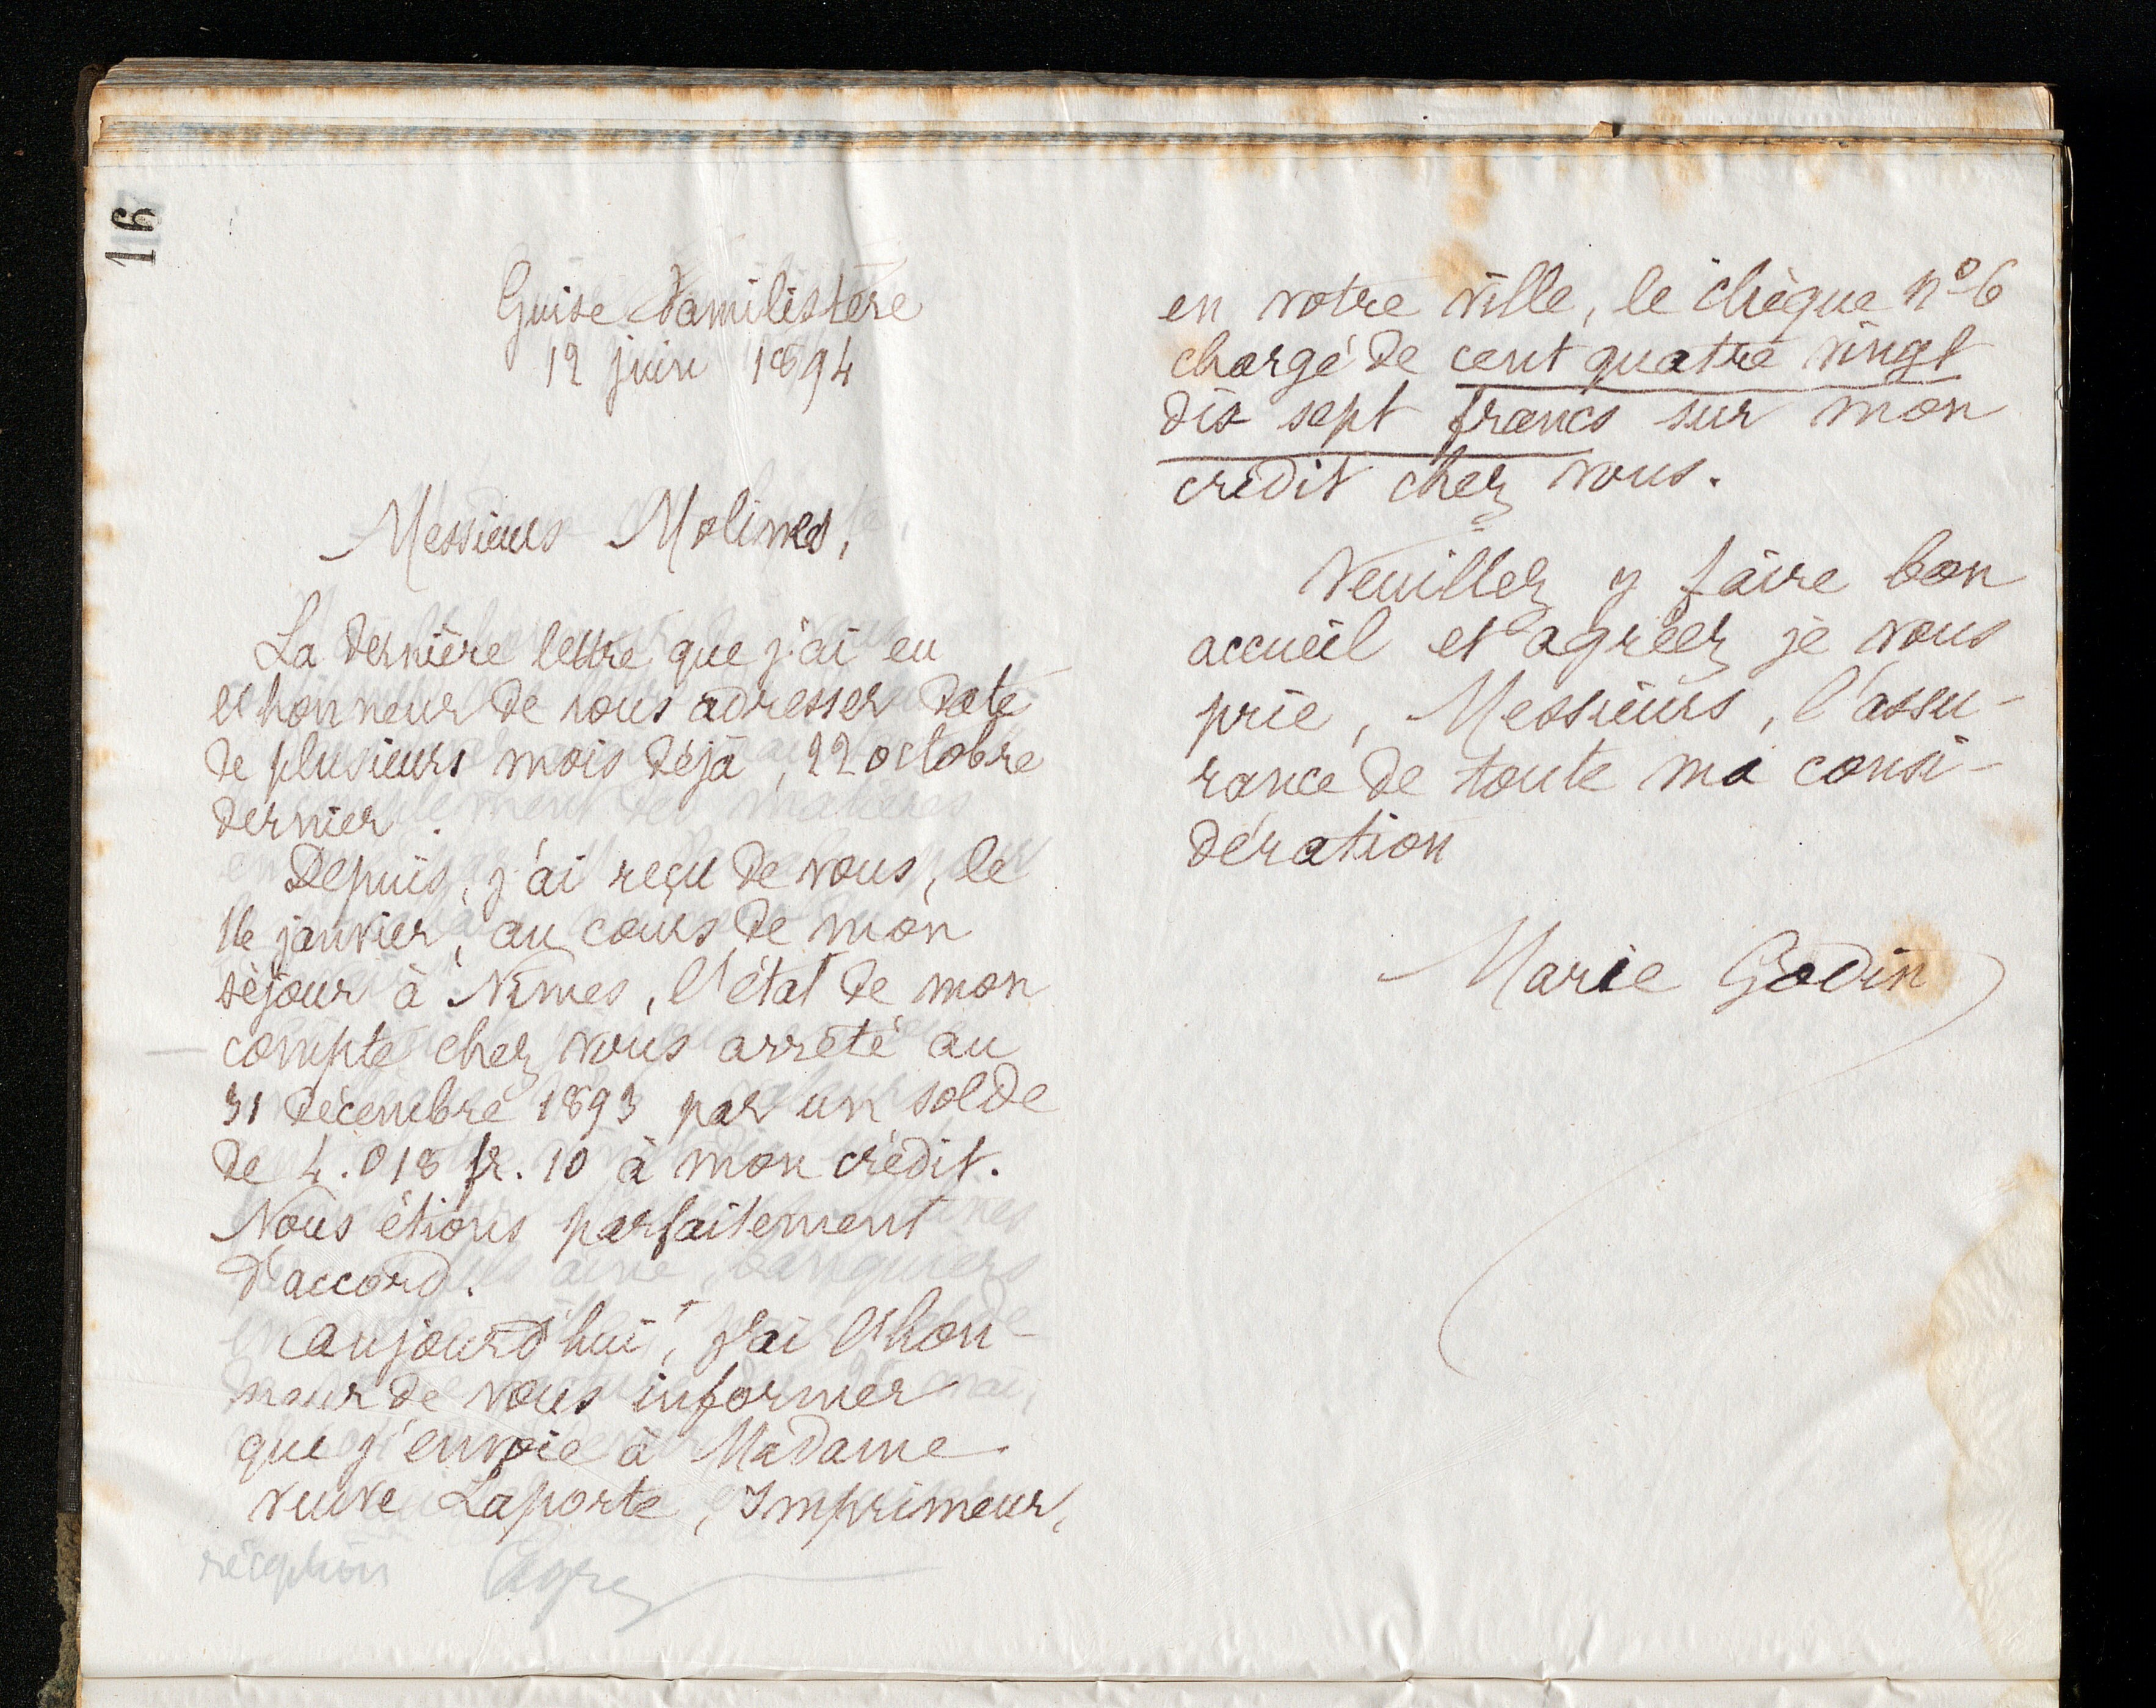 16
Guise Familistère
12 juin 1894
Messieurs Molines,
La dernière lettre que j'ai eu
l'honneur de vous adresser date
de plusieurs mois déjà, 22 octobre
dernier.
Depuis, j'ai reçu de vous, le
16 janvier, au cours de mon
séjour à Nîmes, l'état de mon
compte chez vous arrêté au
31 décembre 1893 par un solde
de 4.018 fr. 10 à mon crédit.
Nous étions parfaitement
d'accord.
Aujourd'hui, j'ai l'hon-
neur de vous informer
que j'envoie à Madame
veuve Laporte, Imprimeur,
en votre ville, le chèque n° 6
chargé de cent quatre vingt
dix sept francs sur mon
crédit chez vous.
Veuillez y faire bon
accueil et agréer je vous
prie, Messieurs, l'assu-
rance de toute ma consi-
dération
Marie Godin